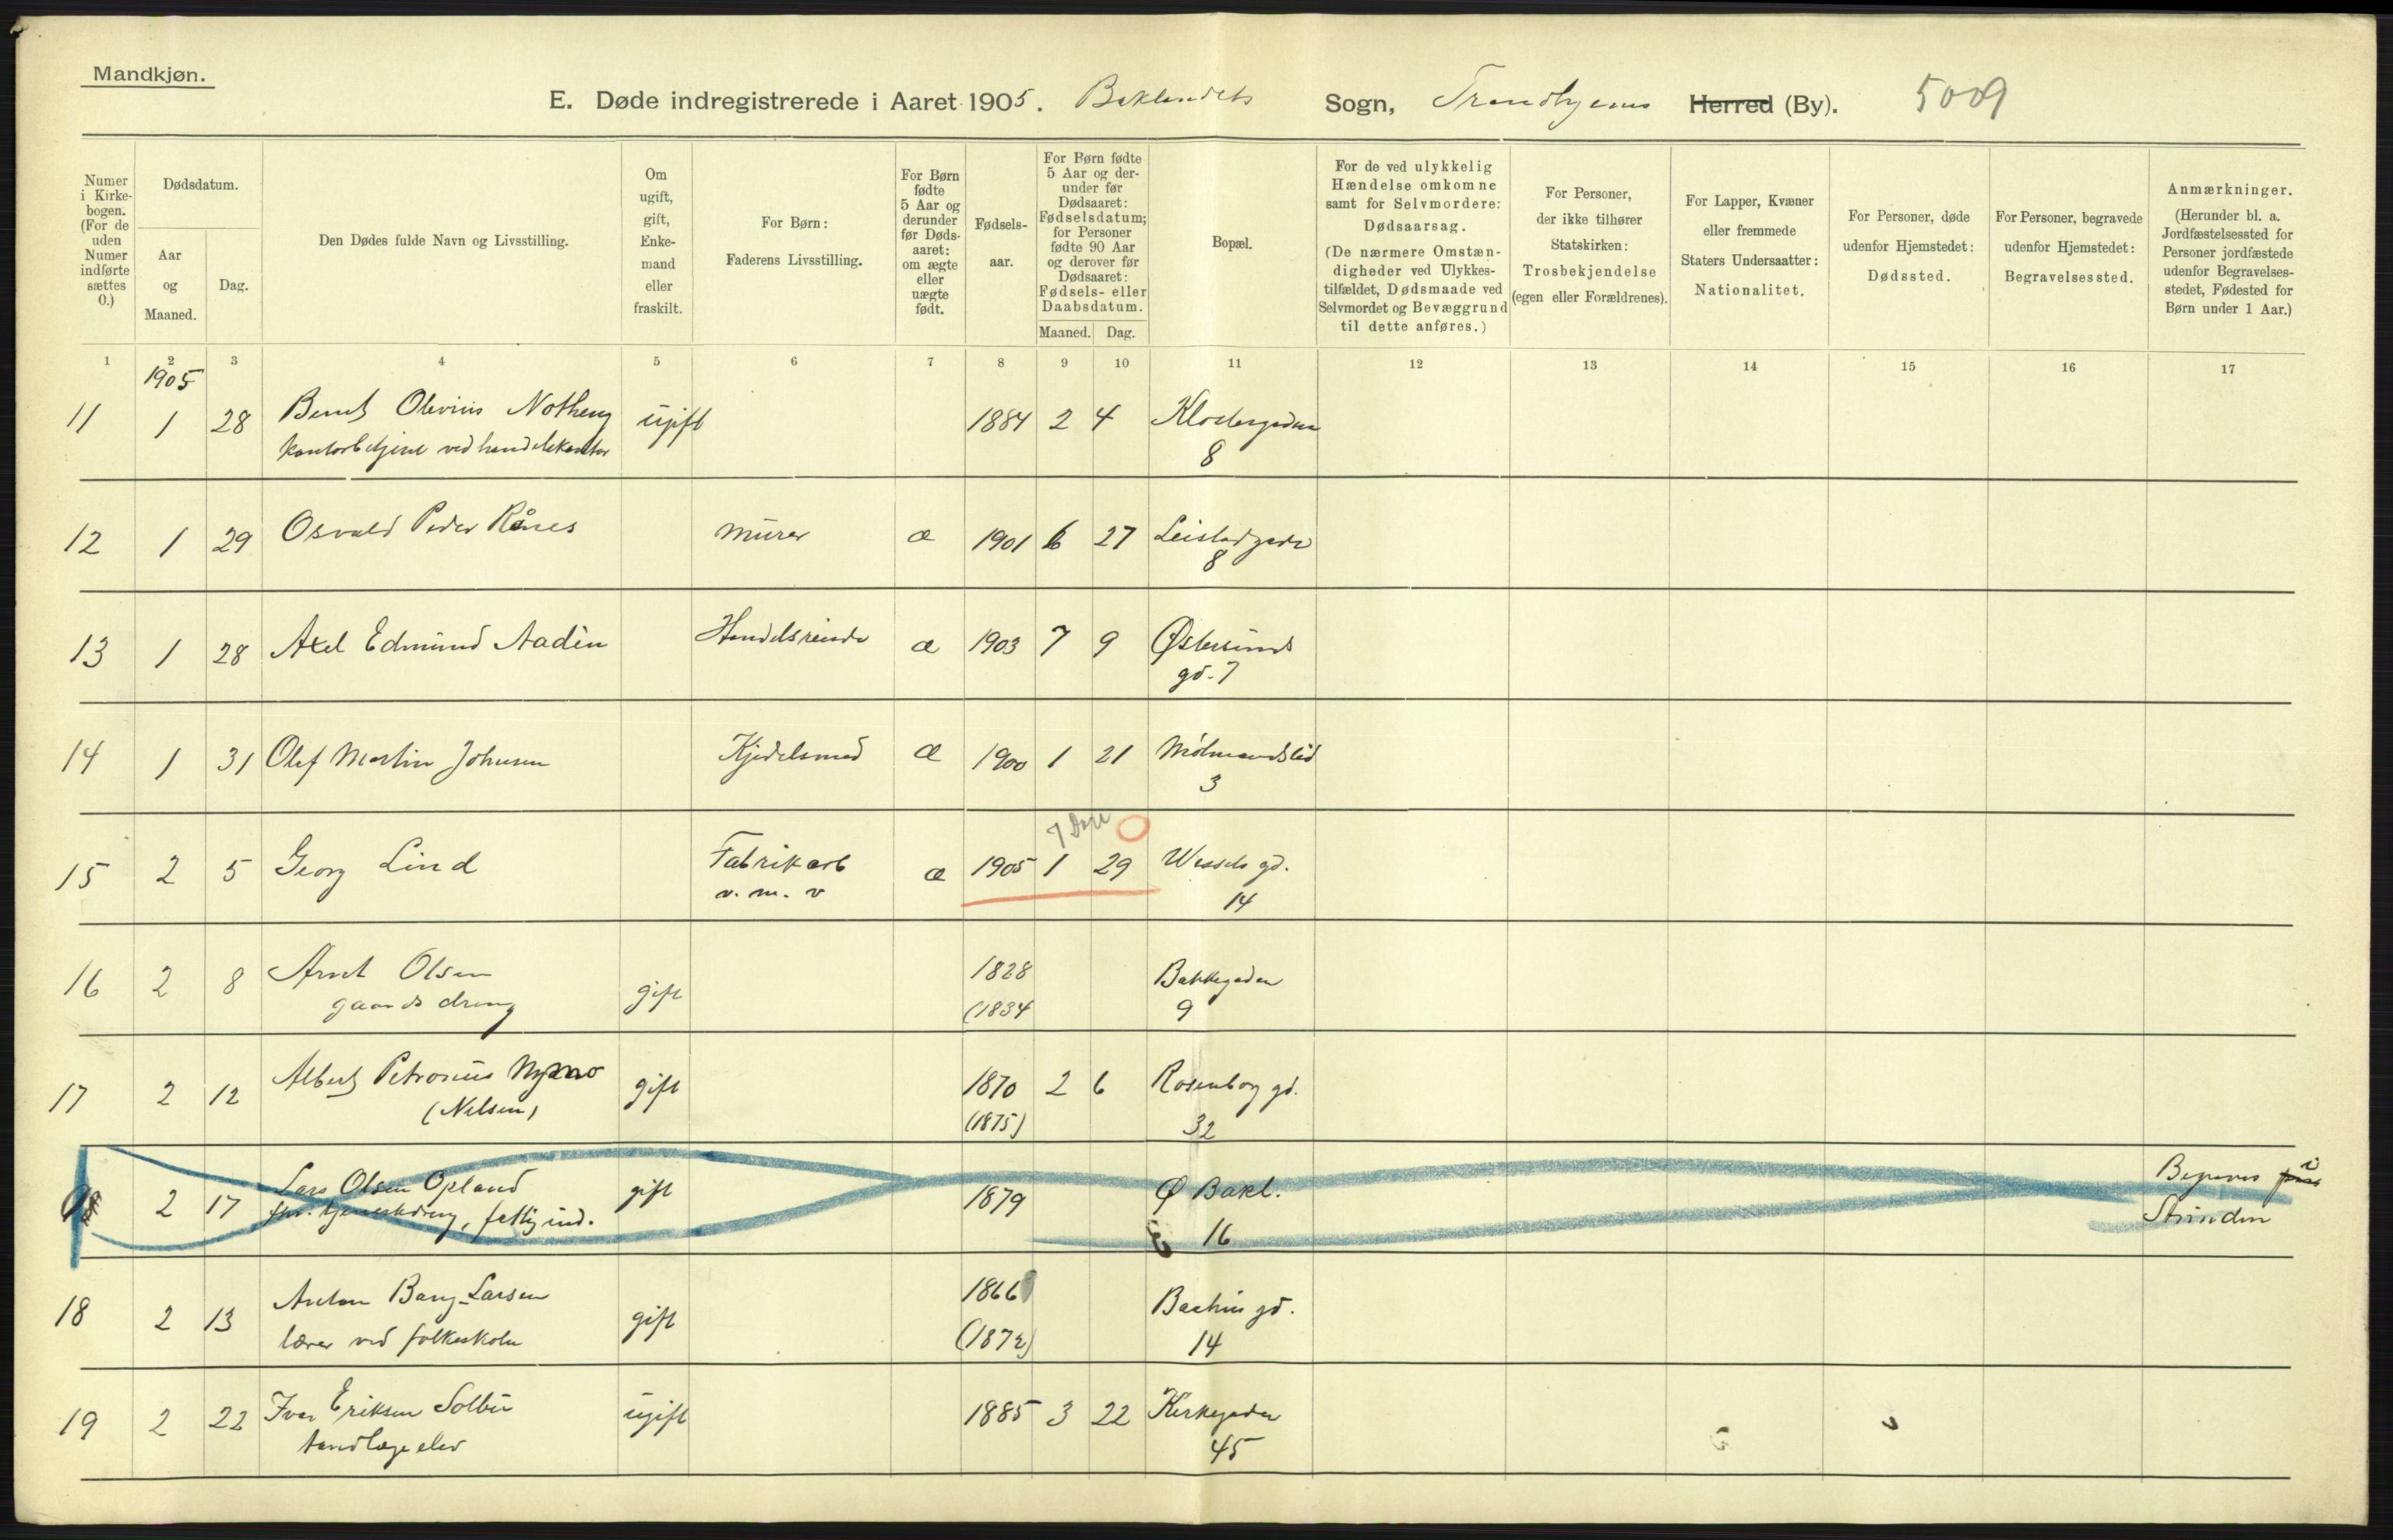 Mandkjøn.
E. Døde indregistrerede i Aaret 1905. Baklandets Sogn, Trondhjems Herred (By). 5009
Numer i Kirkebogen. (For de uden Numer indførte sættes 0.)
Dødsdatum.
Aar og Maaned.
Dag.
Den Dødes fulde Navn og Livsstilling.
Om ugift, gift, Enkemand eller fraskilt.
For Børn: Faderens Livsstilling.
For Børn fødte 5 Aar og derunder før Dødsaaret: om ægte eller uægte født.
Fødselsaar.
For Børn fødte 5 Aar og derunder før Dødsaaret: Fødselsdatum; for Personer fødte 90 Aar og derover før Dødsaaret: Fødsels- eller Daabsdatum.
Maaned. Dag.
Bopæl.
For de ved ulykkelig Hændelse omkomne samt for Selvmordere: Dødsaarsag. (De nærmere Omstændigheder ved Ulykkestilfældet, Dødsmaade ved Selvmordet og Bevæggrund til dette anføres.)
For Personer, der ikke tilhører Statskirken: Trosbekjendelse (egen eller Forældrenes).
For Lapper, Kvæner eller fremmede Staters Undersaatter: Nationalitet.
For Personer, døde udenfor Hjemstedet: Dødssted.
For Personer, begravede udenfor Hjemstedet: Begravelsessted.
Anmærkninger. (Herunder bl. a. Jordfæstelsessted for Personer jordfæstede udenfor Begravelsesstedet, Fødested for Børn under 1 Aar.)
1 2 3 4 5 6 7 8 9 10 11 12 13 14 15 16 17
1905
11 1 28 Bernt Olevius ugift 1884 2 4 Klostergaden
kontorbetjent ved handelskontor 8
12 1 29 Osvald Peder Rånes murer æ 1901 6 27 Leistadgade
8
13 1 28 Axel Edmund Aadin Handelsreisde æ 1903 7 9 Østersunds
gd. 7
14 1 31 Olef Martin Johnsen Kjedelsmed æ 1900 1 21 Mølmandslid
3
7 Dage
15 2 5 Georg Lind Fabrikarb æ 1905 1 29 Wessels gd.
v. m. v 14
16 2 8 Arnt Olsen gift 1828 Bakkegaden
gaardsdreng (1834 9
17 2 12 Albert Petronius Nymo gift 1870 2 6 Rosenborg gd.
(Nilsen) (1875) 32
2 17 Lars Olsen Opland gift 1879 Ø Bakl. Begraves i
fhv. tjenestedreng, fattig ind. 16 Strinden
18 2 13 Anton Bang-Larsen gift 1866 Bachus gd.
lærer ved folkeskolen (1872) 14
19 2 22 Iver Eriksen Solbu ugift 1885 3 22 Kirkegaden
tandlægeelev 45